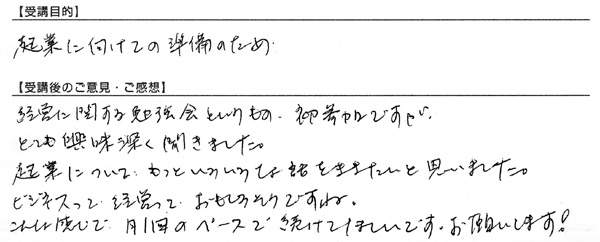 【受講目的】
起業に向けての準備のため
【受講後のご意見・ご感想】
経営に関する勉強会というもの、初参加ですが、
とても興味深く聞きました。
起業について、もっといろいろな話をききたいと思いました。
ビジネスって、経営って、おもしろそうですね。
こんな感じで、月1回のペースで続けてほしいです。お願いします!